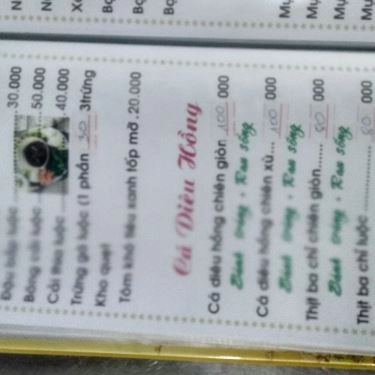 Đậu bắp luộc 30.000
Bông cải luộc 50.000
Cải thìa luộc 40.000
Trứng gà luộc (1 phần 30 3trứng
Kho quẹt
Tôm khô tiêu xanh tóp mỡ. 20.000
Cá Diêu Hồng
Cá diêu hồng chiên giòn 100 000
Bánh tráng + Rau sống
Cá diêu hồng chiên xù... 100 000
Bánh tráng + Rau sống
Thịt ba chỉ chiên giòn...... 80 000
Bánh tráng + Rau sống
Thịt ba chỉ luộc ........... 80 000